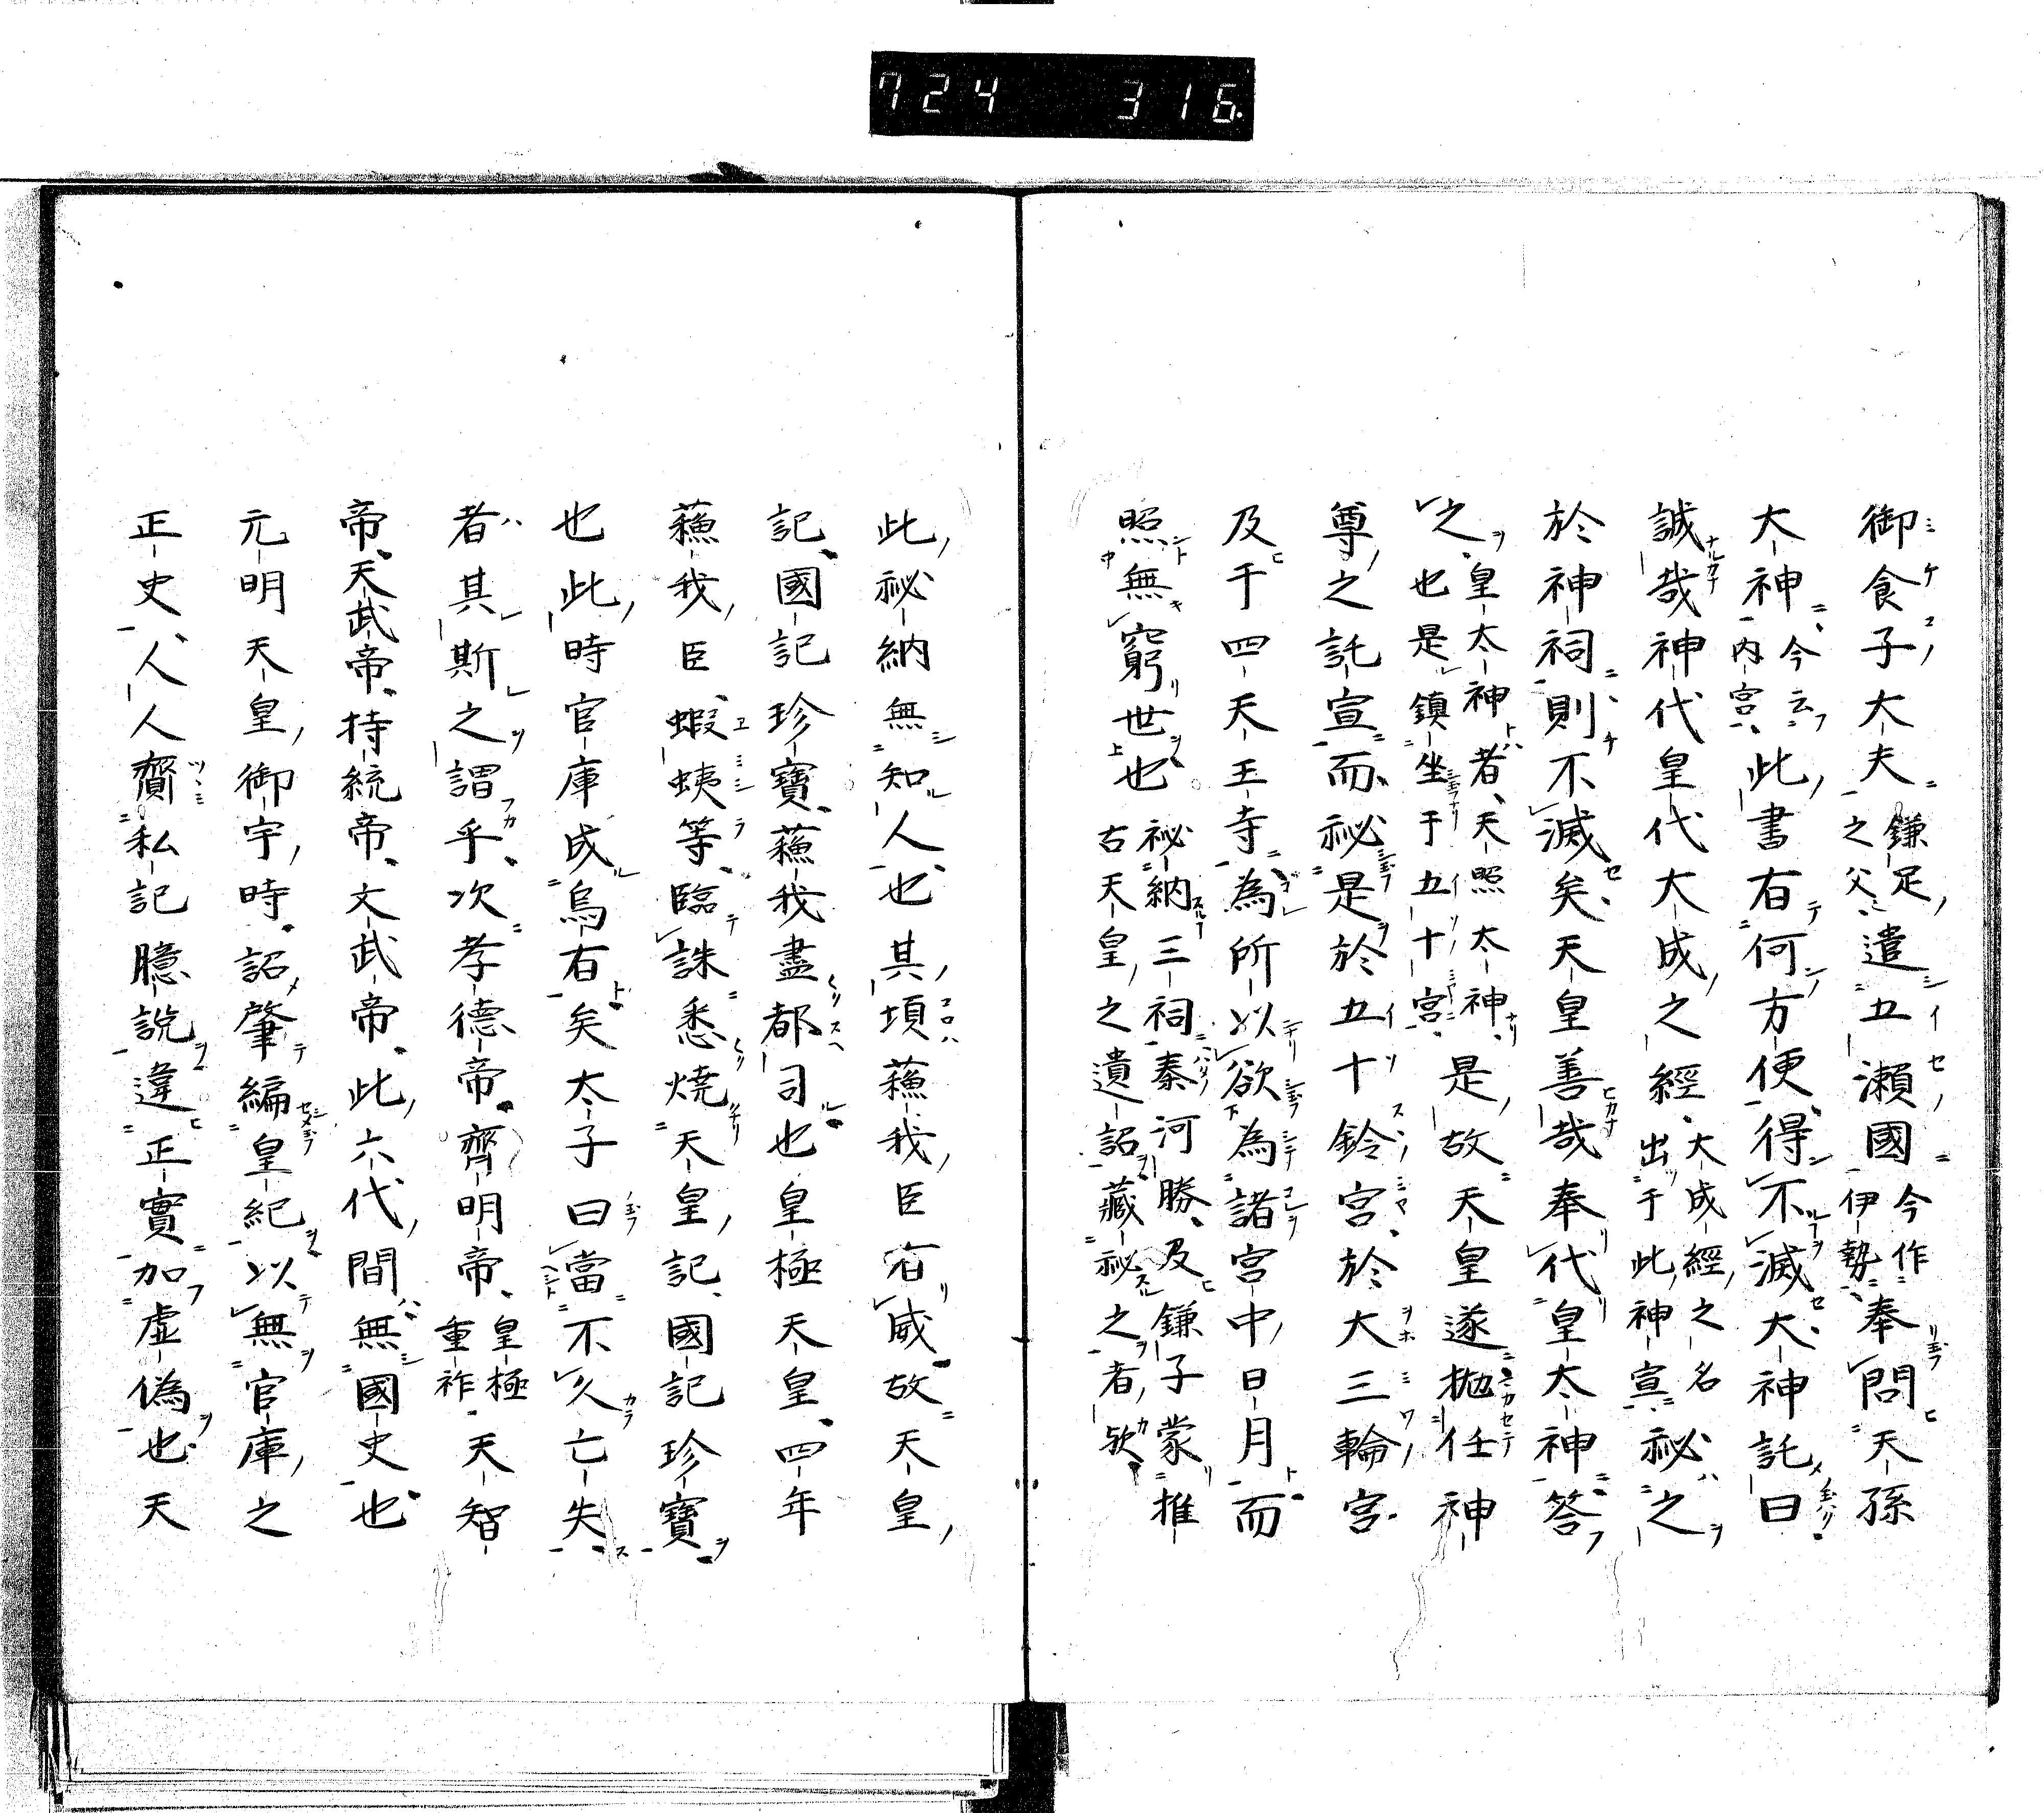 724 316.
御食子大夫鎌足之父遣五瀬國今作伊勢奉問天孫
大神今云内宮此書有何方便得不滅大神託曰
誠哉神代皇代大成之經大成經之名出于此神宣秘之
於神祠則不滅矣天皇善哉奉代皇太神答
之皇太神者天照太神也是鎮坐于五十宮是故天皇遂抛任神
尊之託宣而秘是於五十鈴宮於大三輪宮
及于四天王寺為所以欲為諸宮中日月而
照無窮世也秘納三祠秦河勝及鎌子蒙推古天皇之遺詔藏秘之者欤
此秘納無知人也其頃蘓我臣有威故天皇
記國記珍寶蘓我盡都司也皇極天皇四年
蘓我臣蝦蛦等臨誅悉燒天皇記國記珍寶
也此時官庫成烏有矣太子曰當不久亡失
者其斯之謂乎次孝德帝齊明帝皇極重祚天智
帝天武帝持統帝文武帝此六代間無國史也
元明天皇御宇時詔肇編皇紀以無官庫之
正史人人齎私記臆説違正實加虚偽也天